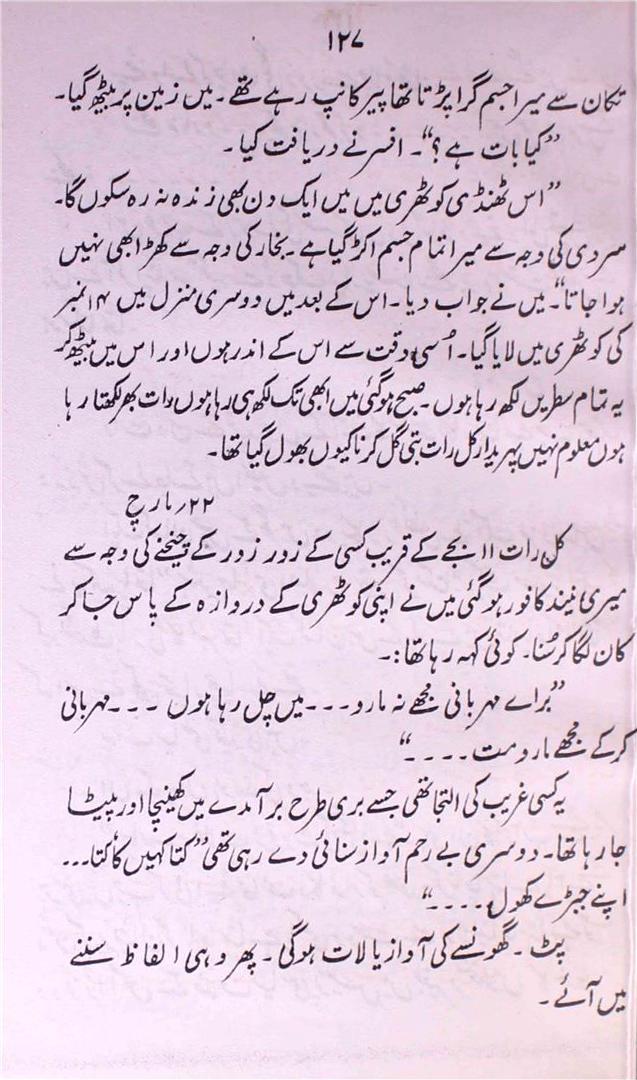 ۱۲۷
تکان سے میرا جسم گرا پڑتا تھا پیر کانپ رہے تھے۔ میں زمین پر بیٹھ گیا۔
”کیا بات ہے؟“۔ افسر نے دریافت کیا۔
”اس ٹھنڈی کوٹھری میں میں ایک دن بھی زندہ نہ رہ سکوں گا۔
سردی کی وجہ سے میرا تمام جسم اکڑ گیا ہے۔ بخار کی وجہ سے کھڑا بھی نہیں
ہوا جاتا“۔ میں نے جواب دیا۔ اس کے بعد میں دوسری منزل میں ۱۴ نمبر
کی کوٹھری میں لایا گیا۔ اُسی وقت سے اس کے اندر ہوں اور اس میں بیٹھ کر
یہ تمام سطریں لکھ رہا ہوں۔ صبح ہو گئی میں ابھی تک لکھ ہی رہا ہوں رات بھر لکھتا رہا
ہوں معلوم نہیں پہریدار کل رات بتی گل کرنا کیوں بھول گیا تھا۔
۲۲؍ مارچ
کل رات ۱۱ بجے کے قریب کسی کے زور زور کے چیخنے کی وجہ سے
میری نیند کافور ہو گئی میں نے اپنی کوٹھری کے دروازہ کے پاس جا کر
کان لگا کر سُنا۔ کوئی کہہ رہا تھا:۔
”براے مہربانی مجھے نہ مارو۔۔۔میں چل رہا ہوں ۔۔۔مہربانی
کر کے مجھے مارو مت۔۔۔۔“
یہ کسی غریب کی التجا تھی جسے بری طرح برآمدے میں کھینچا اور پیٹا
جا رہا تھا۔ دوسری بے رحم آواز سنائی دے رہی تھی ”کتا کہیں کا کتا۔۔۔
اپنے جبڑے کھول۔۔۔۔“
پٹ۔ گھونسے کی آواز یا لات ہو گی۔ پھر وہی الفاظ سننے
میں آئے۔